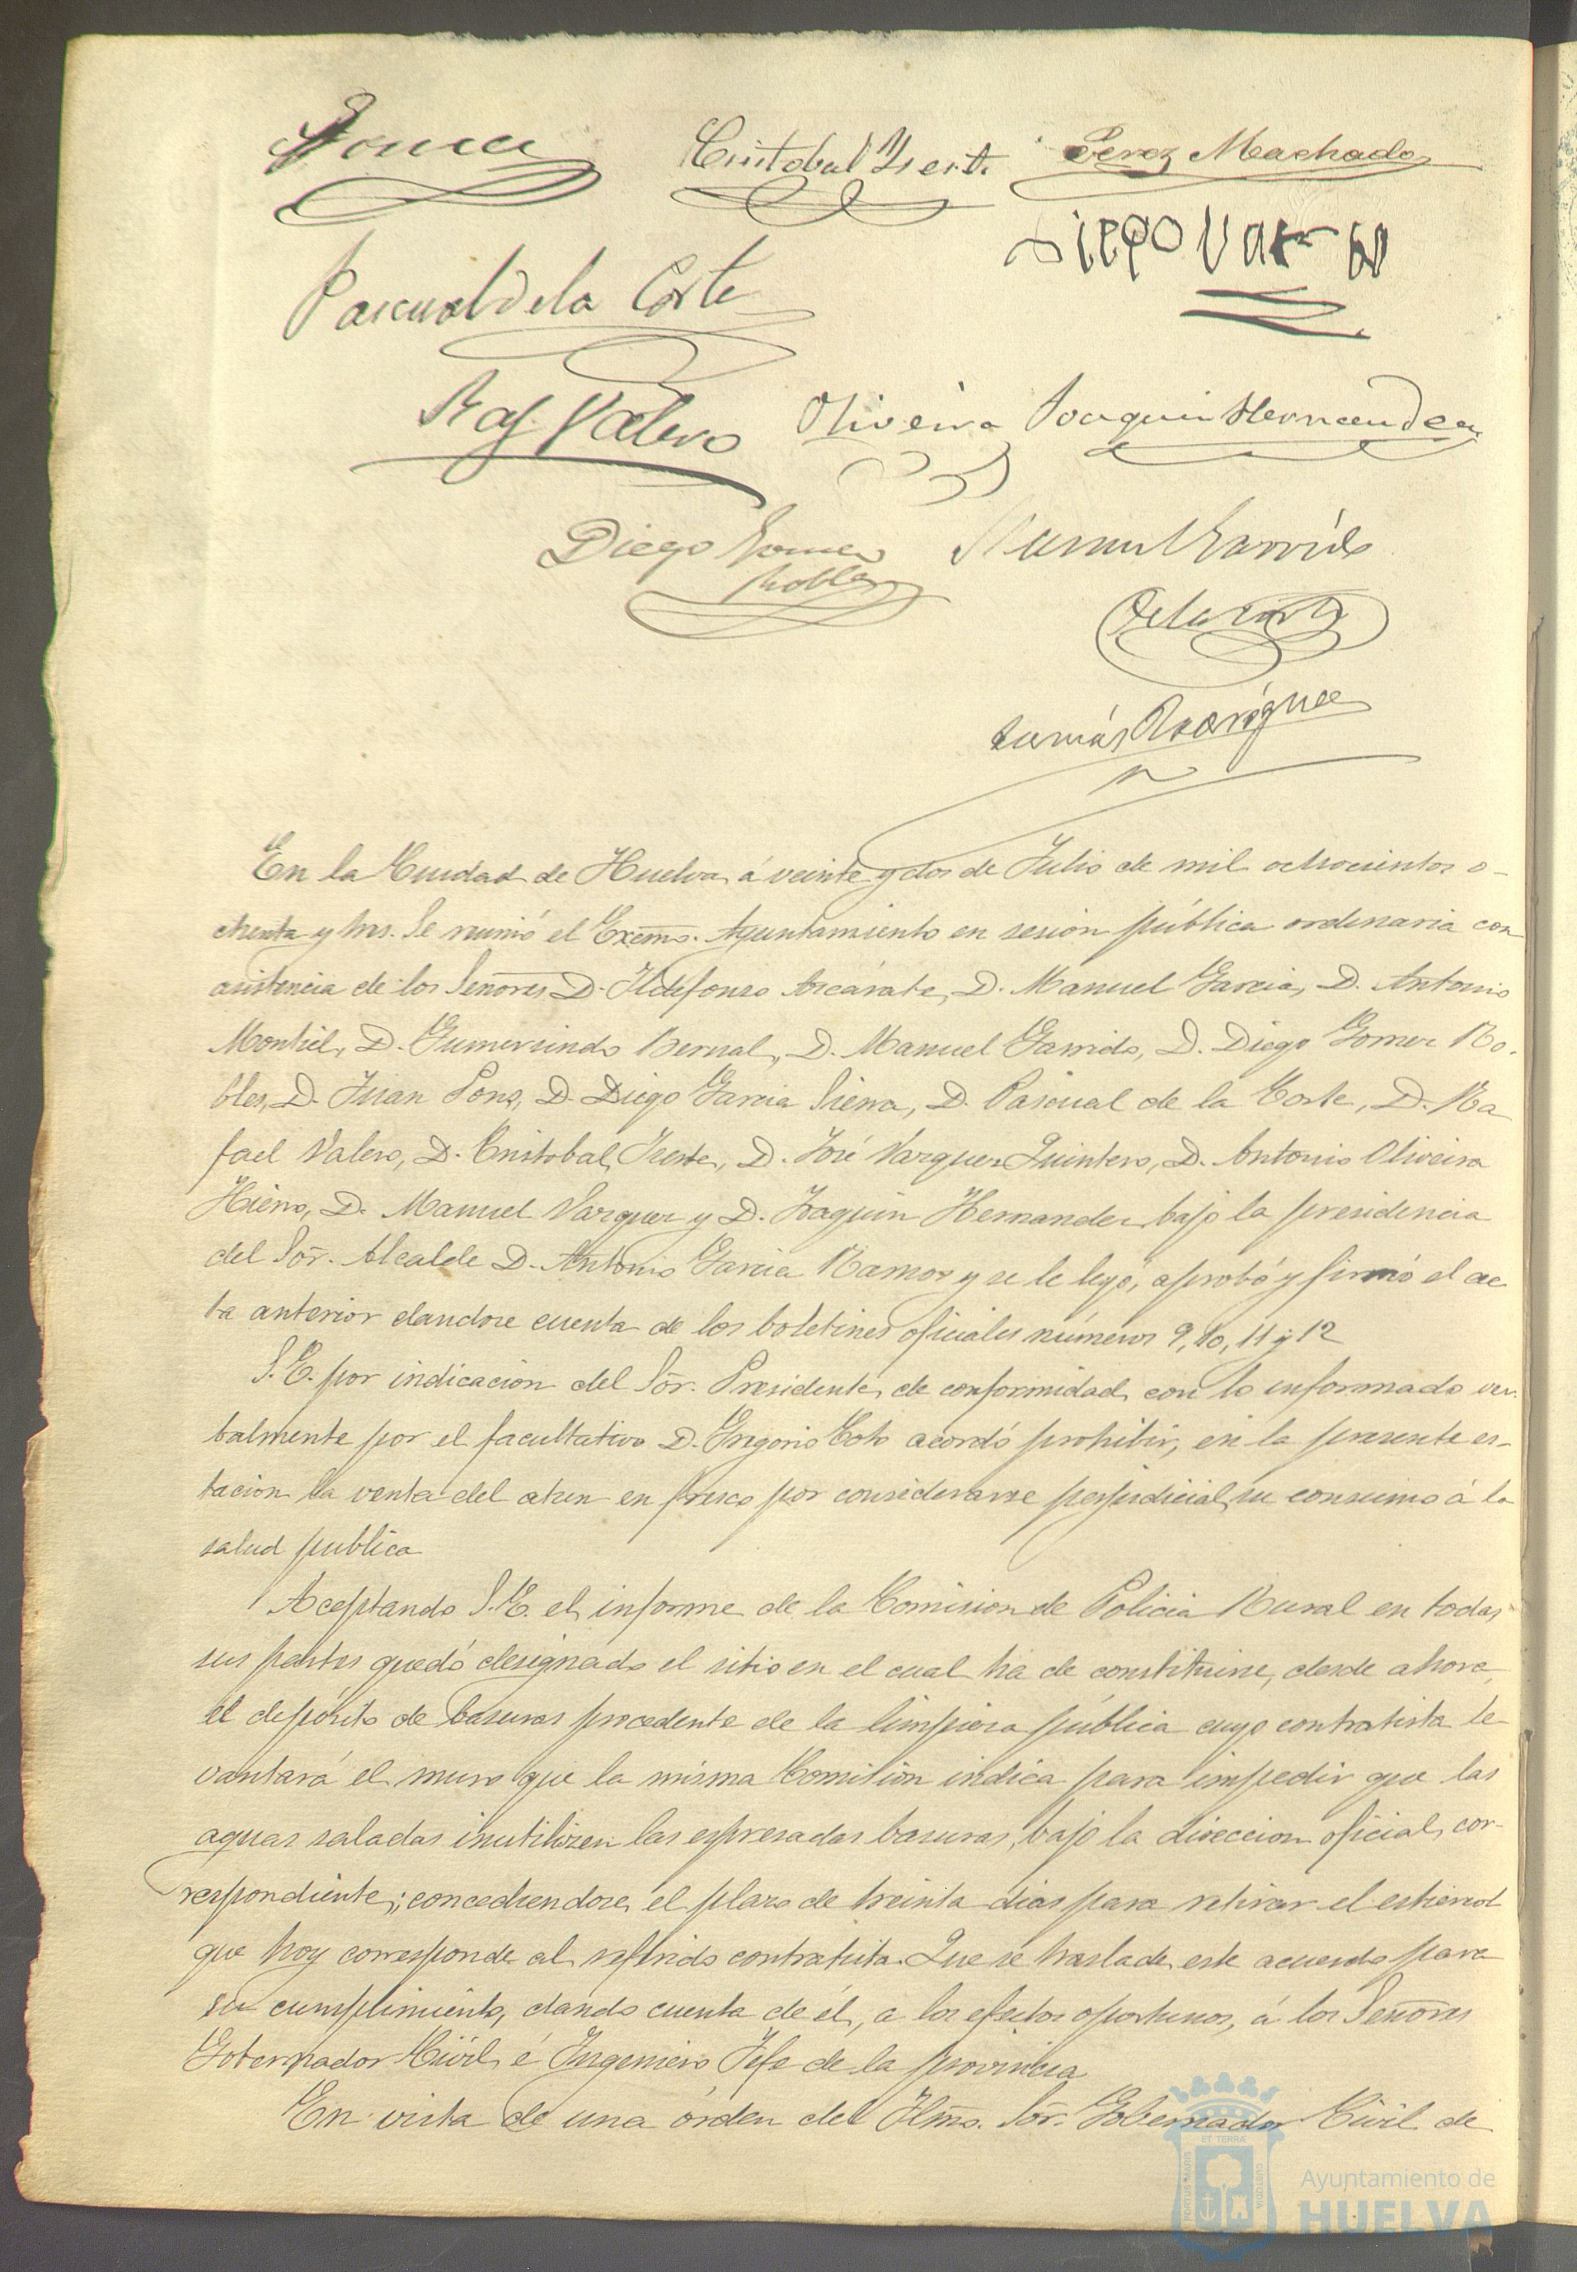 Cristobal Yest. Perez Machado
Diego
Pascual de la Corte
Raf Valero Oliveira Joaquin Hernandez
Diego Gomez Manuel Garrido
Robles
De la Corte
Tomás Rodriguez
En la Ciudad de Huelva á veinte y dos de Julio de mil ochocientos o-
chenta y tres. Se reunió el Excmo. Ayuntamiento en sesion pública ordinaria con
asistencia de los Señores D. Ildefonso Azcárate, D. Manuel Garcia, D. Antonio
Montiel, D. Gumersindo Bernal, D. Manuel Garrido, D. Diego Gomez Ro-
bles, D. Juan Pons, D. Diego Garcia Sierra, D. Pascual de la Corte, D. Ra
fael Valero, D. Cristobal Yeste, D. José Vazquez Quintero, D. Antonio Oliveira
Hierro, D. Manuel Vazquez y D. Joaquin Hernandez bajo la presidencia
del Sór. Alcalde D. Antonio Garcia Ramos y se le leyó, aprobó y firmó el ac
ta anterior dandose cuenta de los boletines oficiales números 9, 10, 11 y 12
S. E. por indicacion del Sór. Presidente, de conformidad con lo informado ver-
balmente por el facultativo D. Gregorio Coto acordó prohibir, en la presente es-
tacion la venta del atun en fresco por considerarse perjudicial su consumo á la
salud publica
Aceptando S. E. el informe de la Comision de Policia Rural en todas
sus partes quedó designado el sitio en el cual ha de constituirse, desde ahora,
el depósito de basuras procedente de la limpieza pública cuyo contratista le
vantará el muro que la misma Comision indica para impedir que las
aguas saladas inutilizen las espresadas basuras, bajo la direccion oficial cor-
respondiente; concediendose el plazo de treinta dias para retirar el estiercol
que hoy corresponde al referido contratista. Que se traslade este acuerdo para
su cumplimiento, dando cuenta de él, a los efectos oportunos, á los Señores
Gobernador Civil é Ingeniero Jefe de la provincia
En vista de una órden del Ilmo. Sór. Gobernador Civil de
PORTUS MARIS ET TERRÆ CUSTODIA
Ayuntamiento de
HUELVA